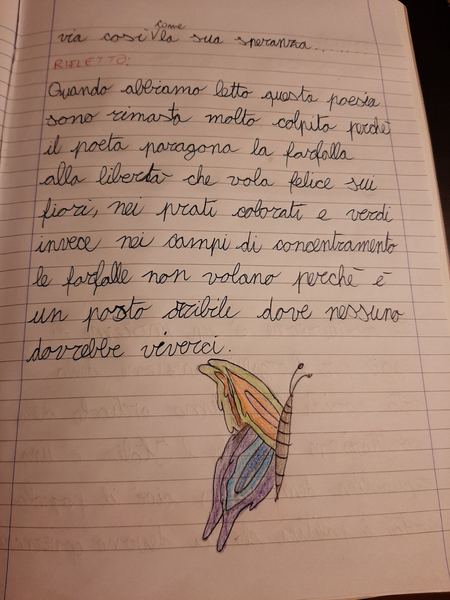 via così come la sua speranza......
RIFLETTO:
Quando abbiamo letto questa poesia
sono rimasta molto colpita perchè
il poeta paragona la farfalla
alla libertà che vola felice sui
fiori, nei prati colorati e verdi
invece nei campi di concentramento
le farfalle non volano perchè è
un posto dove nessuno
dovrebbe viverci.